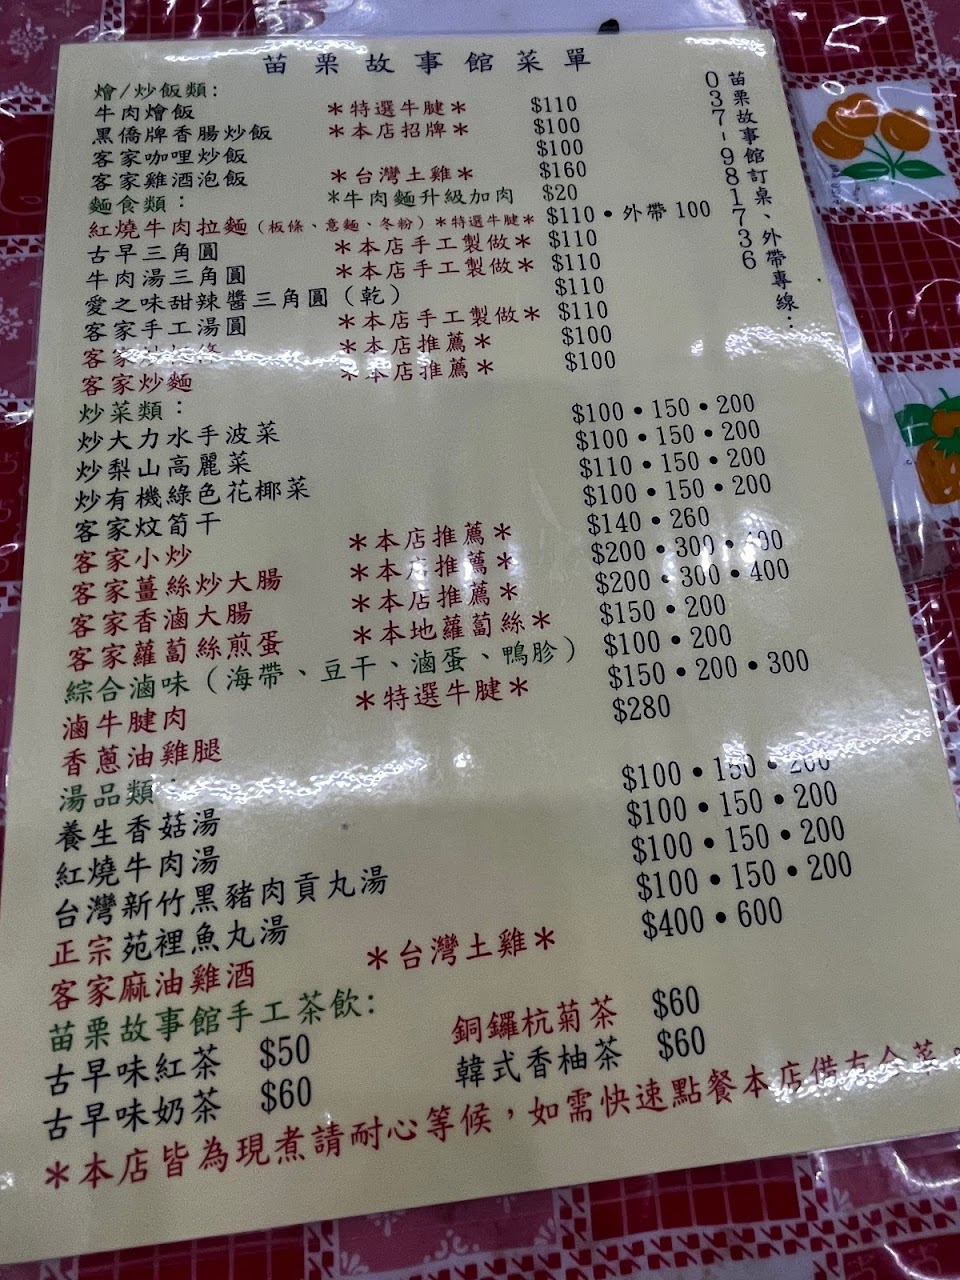 苗栗故事館菜單
苗栗故事館訂桌、外帶專線：
037-981736
燴/炒飯類：
牛肉燴飯 ＊特選牛腱＊ $110
黑僑牌香腸炒飯 ＊本店招牌＊ $100
客家咖哩炒飯 $100
客家雞酒泡飯 ＊台灣土雞＊ $160
麵食類： *牛肉麵升級加肉 $20
紅燒牛肉拉麵（板條、意麵、冬粉）＊特選牛腱＊ $110•外帶100
古早三角圓 ＊本店手工製做＊ $110
牛肉湯三角圓 ＊本店手工製做＊ $110
愛之味甜辣醬三角圓（乾） $110
客家手工湯圓 ＊本店手工製做＊ $110
客家 ＊本店推薦＊ $100
客家炒麵 ＊本店推薦＊ $100
炒菜類：
炒大力水手波菜 $100•150•200
炒梨山高麗菜 $100•150•200
炒有機綠色花椰菜 $110•150•200
客家炆筍干 $100•150•200
客家小炒 ＊本店推薦＊ $140•260
客家薑絲炒大腸 ＊本店推薦＊ $200•300•400
客家香滷大腸 ＊本店推薦＊ $200•300•400
客家蘿蔔絲煎蛋 ＊本地蘿蔔絲＊ $150•200
綜合滷味（海帶、豆干、滷蛋、鴨胗） $100•200
滷牛腱肉 ＊特選牛腱＊ $150•200•300
香蔥油雞腿 $280
湯品類：
養生香菇湯 $100•150•200
紅燒牛肉湯 $100•150•200
台灣新竹黑豬肉貢丸湯 $100•150•200
正宗苑裡魚丸湯 $100•150•200
客家麻油雞酒 ＊台灣土雞＊ $400•600
苗栗故事館手工茶飲:
古早味紅茶 $50 銅鑼杭菊茶 $60
古早味奶茶 $60 韓式香柚茶 $60
＊本店皆為現煮請耐心等候，如需快速點餐本店備有合菜